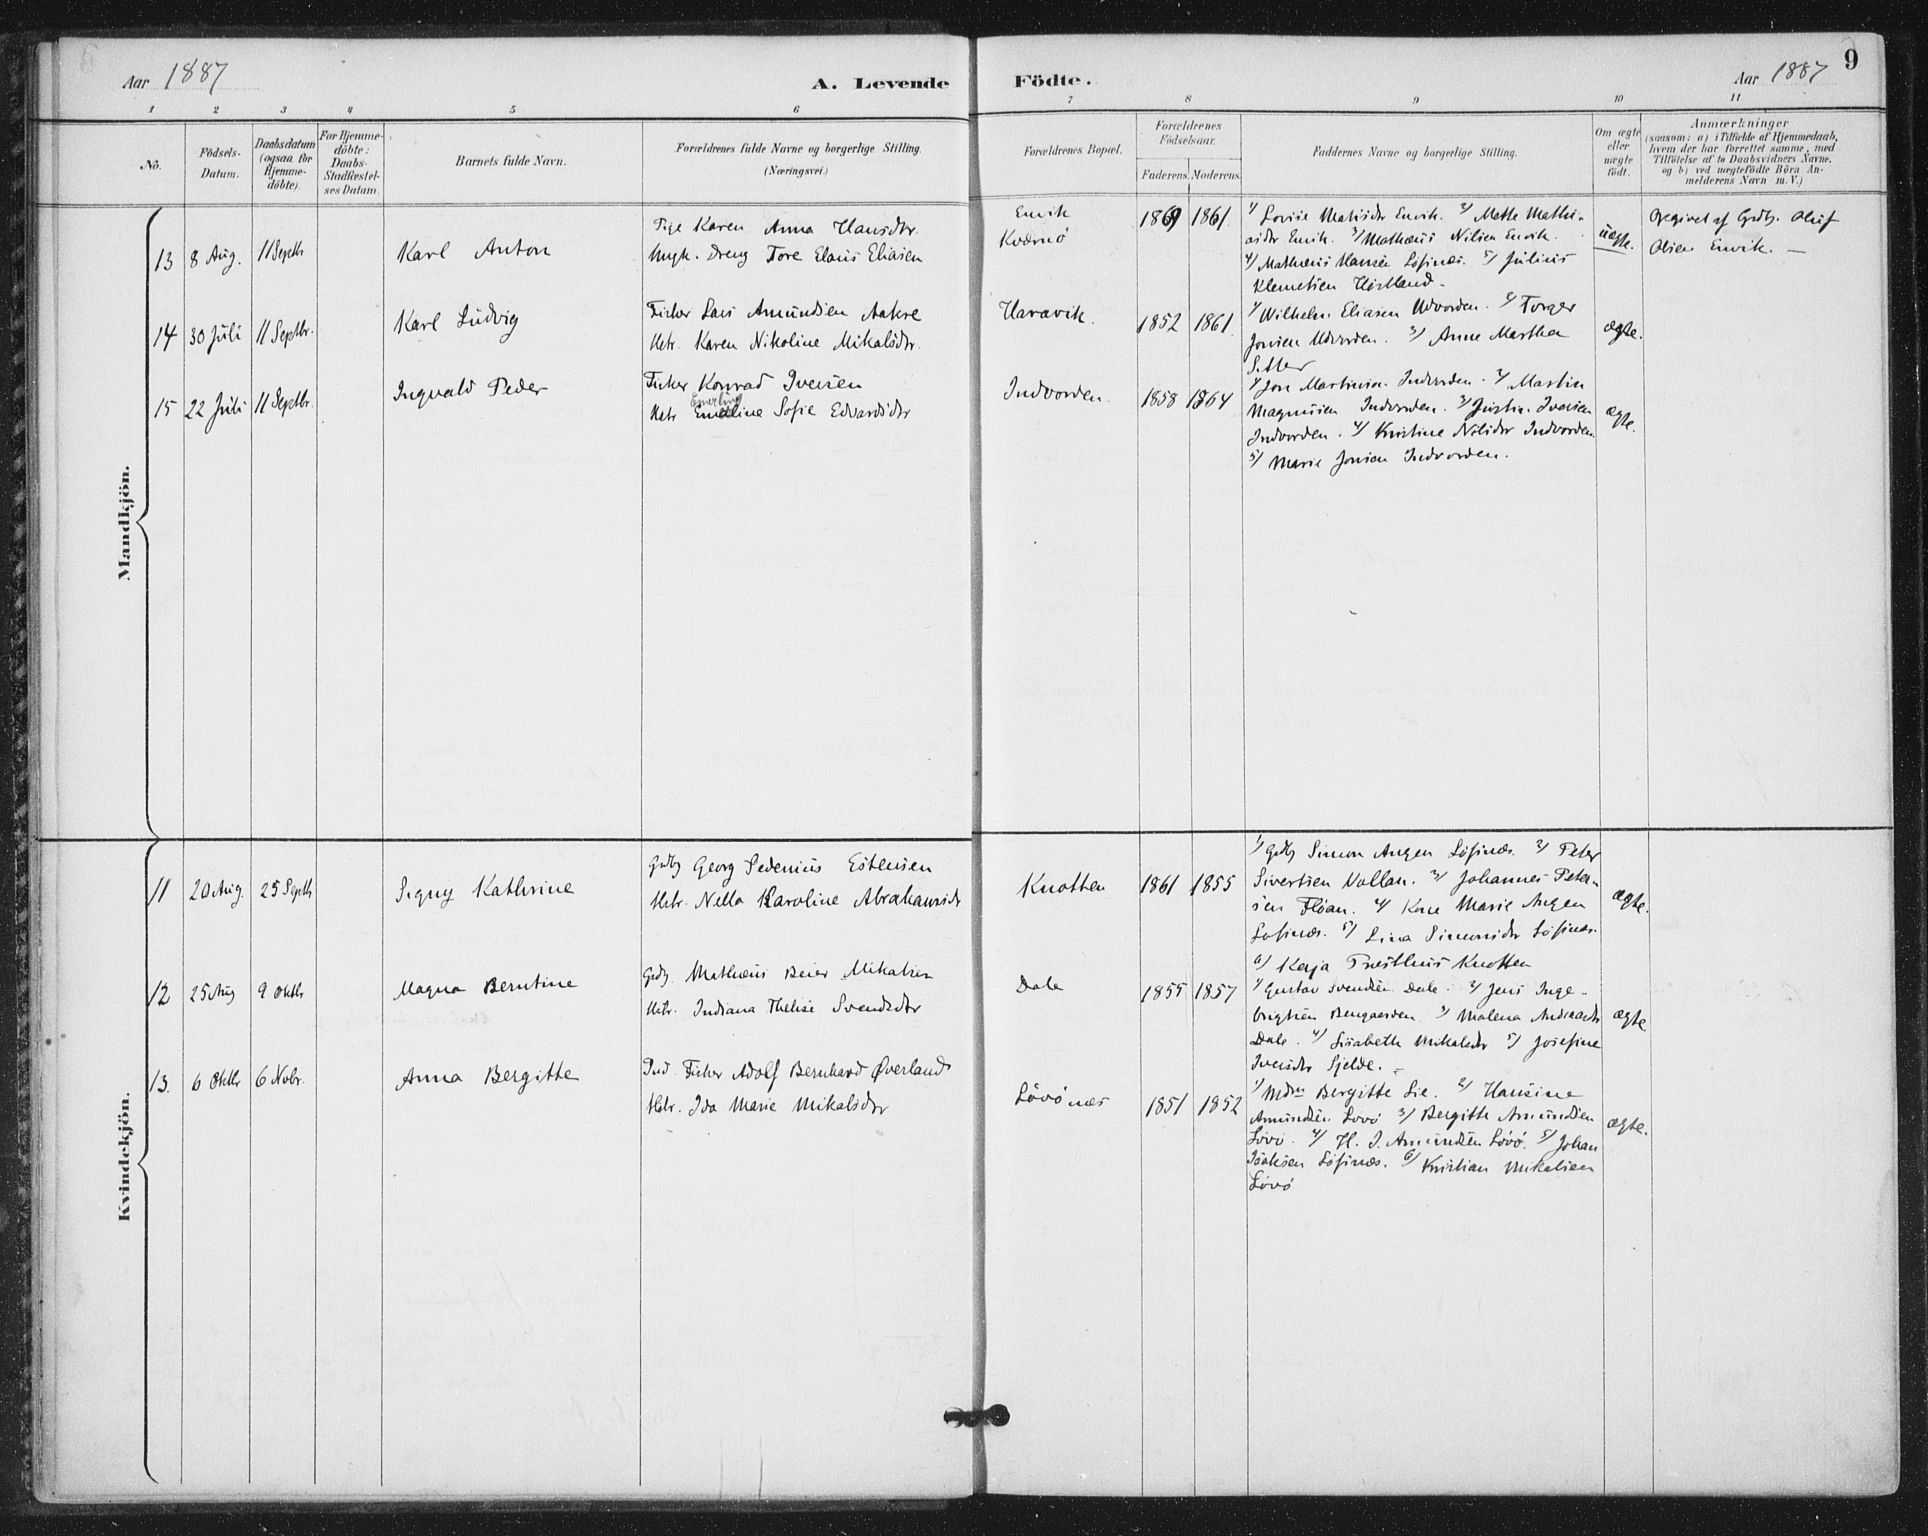 Aar 1887
A. Levende
Födte.
Aar 1887
9
1 2 3 4 5 6 7 8 9 10 11
No.
Födsels-
Datum.
Daabsdatum
(ogsaa for
Hjemme-
döbte).
For Hjemme-
döbte:
Daabs-
Stadfæstel-
ses Datum.
Barnets fulde Navn.
Forældrenes fulde Navne og borgerlige Stilling.
(Næringsvei.)
Forældrenes Bopæl.
Forældrenes
Födselsaar.
Faderens. Moderens.
Faddernes Navne og borgerlige Stilling.
Om ægte
eller
uægte
födt.
Anmærkninger
(saasom: a) i Tilfælde af Hjemmedaab,
hvem der har forrettet samme, med
Tilföielse af to Daabsvidners Navne,
og b) ved uægtefödte Börn An-
melderens Navn m. V.)
Mandkjön.
13 8 Aug. 11 Septbr Karl Anton
Pige Karen Anna Hansdtr.
Ungk. Dreng Tore Elaus Eliasen
Envik
Kværnö
1869 1861
1/ Lovise Matisdtr Envik. 2/ Mette Mathi-
asdtr Envik. 3/ Mathæus Nilsen Envik.
4/ Mathæus Hansen Löfsnæs. 5/ Julius
Klemetsen
uægte.
Opgivet af Grdbr. Oluf
Olsen Envik. —
14 30 Juli 11 Septbr. Karl Ludvig
Fisker Lars Amundsen Aakre
Hstr. Karen Nikoline Mikalsdtr.
Haravik.
1852 1861
1/ Wilhelm Eliasen Udvorden. 2/ Torger
Jonsen Udvorden. 3/ Anne Martha
Sitter
ægte.
15 22 Juli 11 Septbr. Ingvald Peder
Fisker Konrad Iversen
Hstr Emeline Sofie Edvardsdtr
Indvorden.
1858 1864
1/ Jon Martinsen Indvorden. 2/ Martin
Magnusen Indvorden. 3/ Justin Iversen
Indvorden. 4/ Kristine Nilsdtr Indvorden.
5/ Marie Jonsen Indvorden.
ægte.
Kvindekjön.
11 20 Aug. 25 Septbr Signy Kathrine
Grdbr Georg Pedenius Estensen
Hstr. Nella Karoline Abrahamsdtr
Knotten
1861 1855
1/ Grdbr Simon Angen Löfsnæs. 2/ Peter
Sivertsen Vollan. 3/ Johannes Peter-
sen Floan. 4/ Kone Marie Angen
Löfsnæs. 5/ Lina Simonsdtr Löfsnæs.
6/ Kaja Presthus Knotten
ægte.
12 25 Aug 9 Oktbr Magna Berntine
Grdbr. Mathæus Beier Mikalsen
Hstr. Indiana Thelise Svendsdtr
Dale
1855 1857
1/ Gustav Svendsen Dale. 2/ Jens Inge-
brigtsen Bengaarden 3/ Malena Andreasdtr
Dale. 4/ Lisabeth Mikalsdtr 5/ Josefine
Iversdtr Sjelde. —
ægte
13. 6 Oktbr 6 Novbr. Anna Bergitte
Ind. Fisker Adolf Bernhard Øverland
Hstr. Ida Marie Mikalsdtr
Lövönæs
1851 1852
1/ Mdm Bergitte Lie. 2/ Hansine
Amundsen Lövö 3/ Bergitte Amundsen
Lövö. 4/ H. J. Amundsen Lövö. 5/ Johan
Isaksen Löfsnæs. 6/ Kristian Mikalsen
Lövö
ægte.